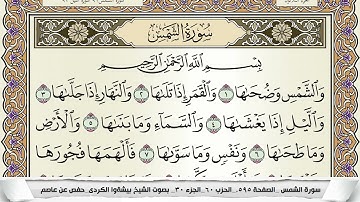 سُورَةُ الشَّمْسِ
بِسْمِ اللَّهِ الرَّحْمَٰنِ الرَّحِيمِ
وَالشَّمْسِ وَضُحَىٰهَا ١ وَالْقَمَرِ إِذَا تَلَىٰهَا ٢ وَالنَّهَارِ إِذَا جَلَّىٰهَا ٣
وَاللَّيْلِ إِذَا يَغْشَىٰهَا ٤ وَالسَّمَاءِ وَمَا بَنَىٰهَا ٥ وَالْأَرْضِ
وَمَا طَحَىٰهَا ٦ وَنَفْسٍ وَمَا سَوَّىٰهَا ٧ فَأَلْهَمَهَا فُجُورَهَا
سورة الشمس _ الصفحة ٥٩٥_ الحزب ٦٠_ الجزء ٣٠_ بصوت الشيخ بيشةوا الكردي_ حفص عن عاصم